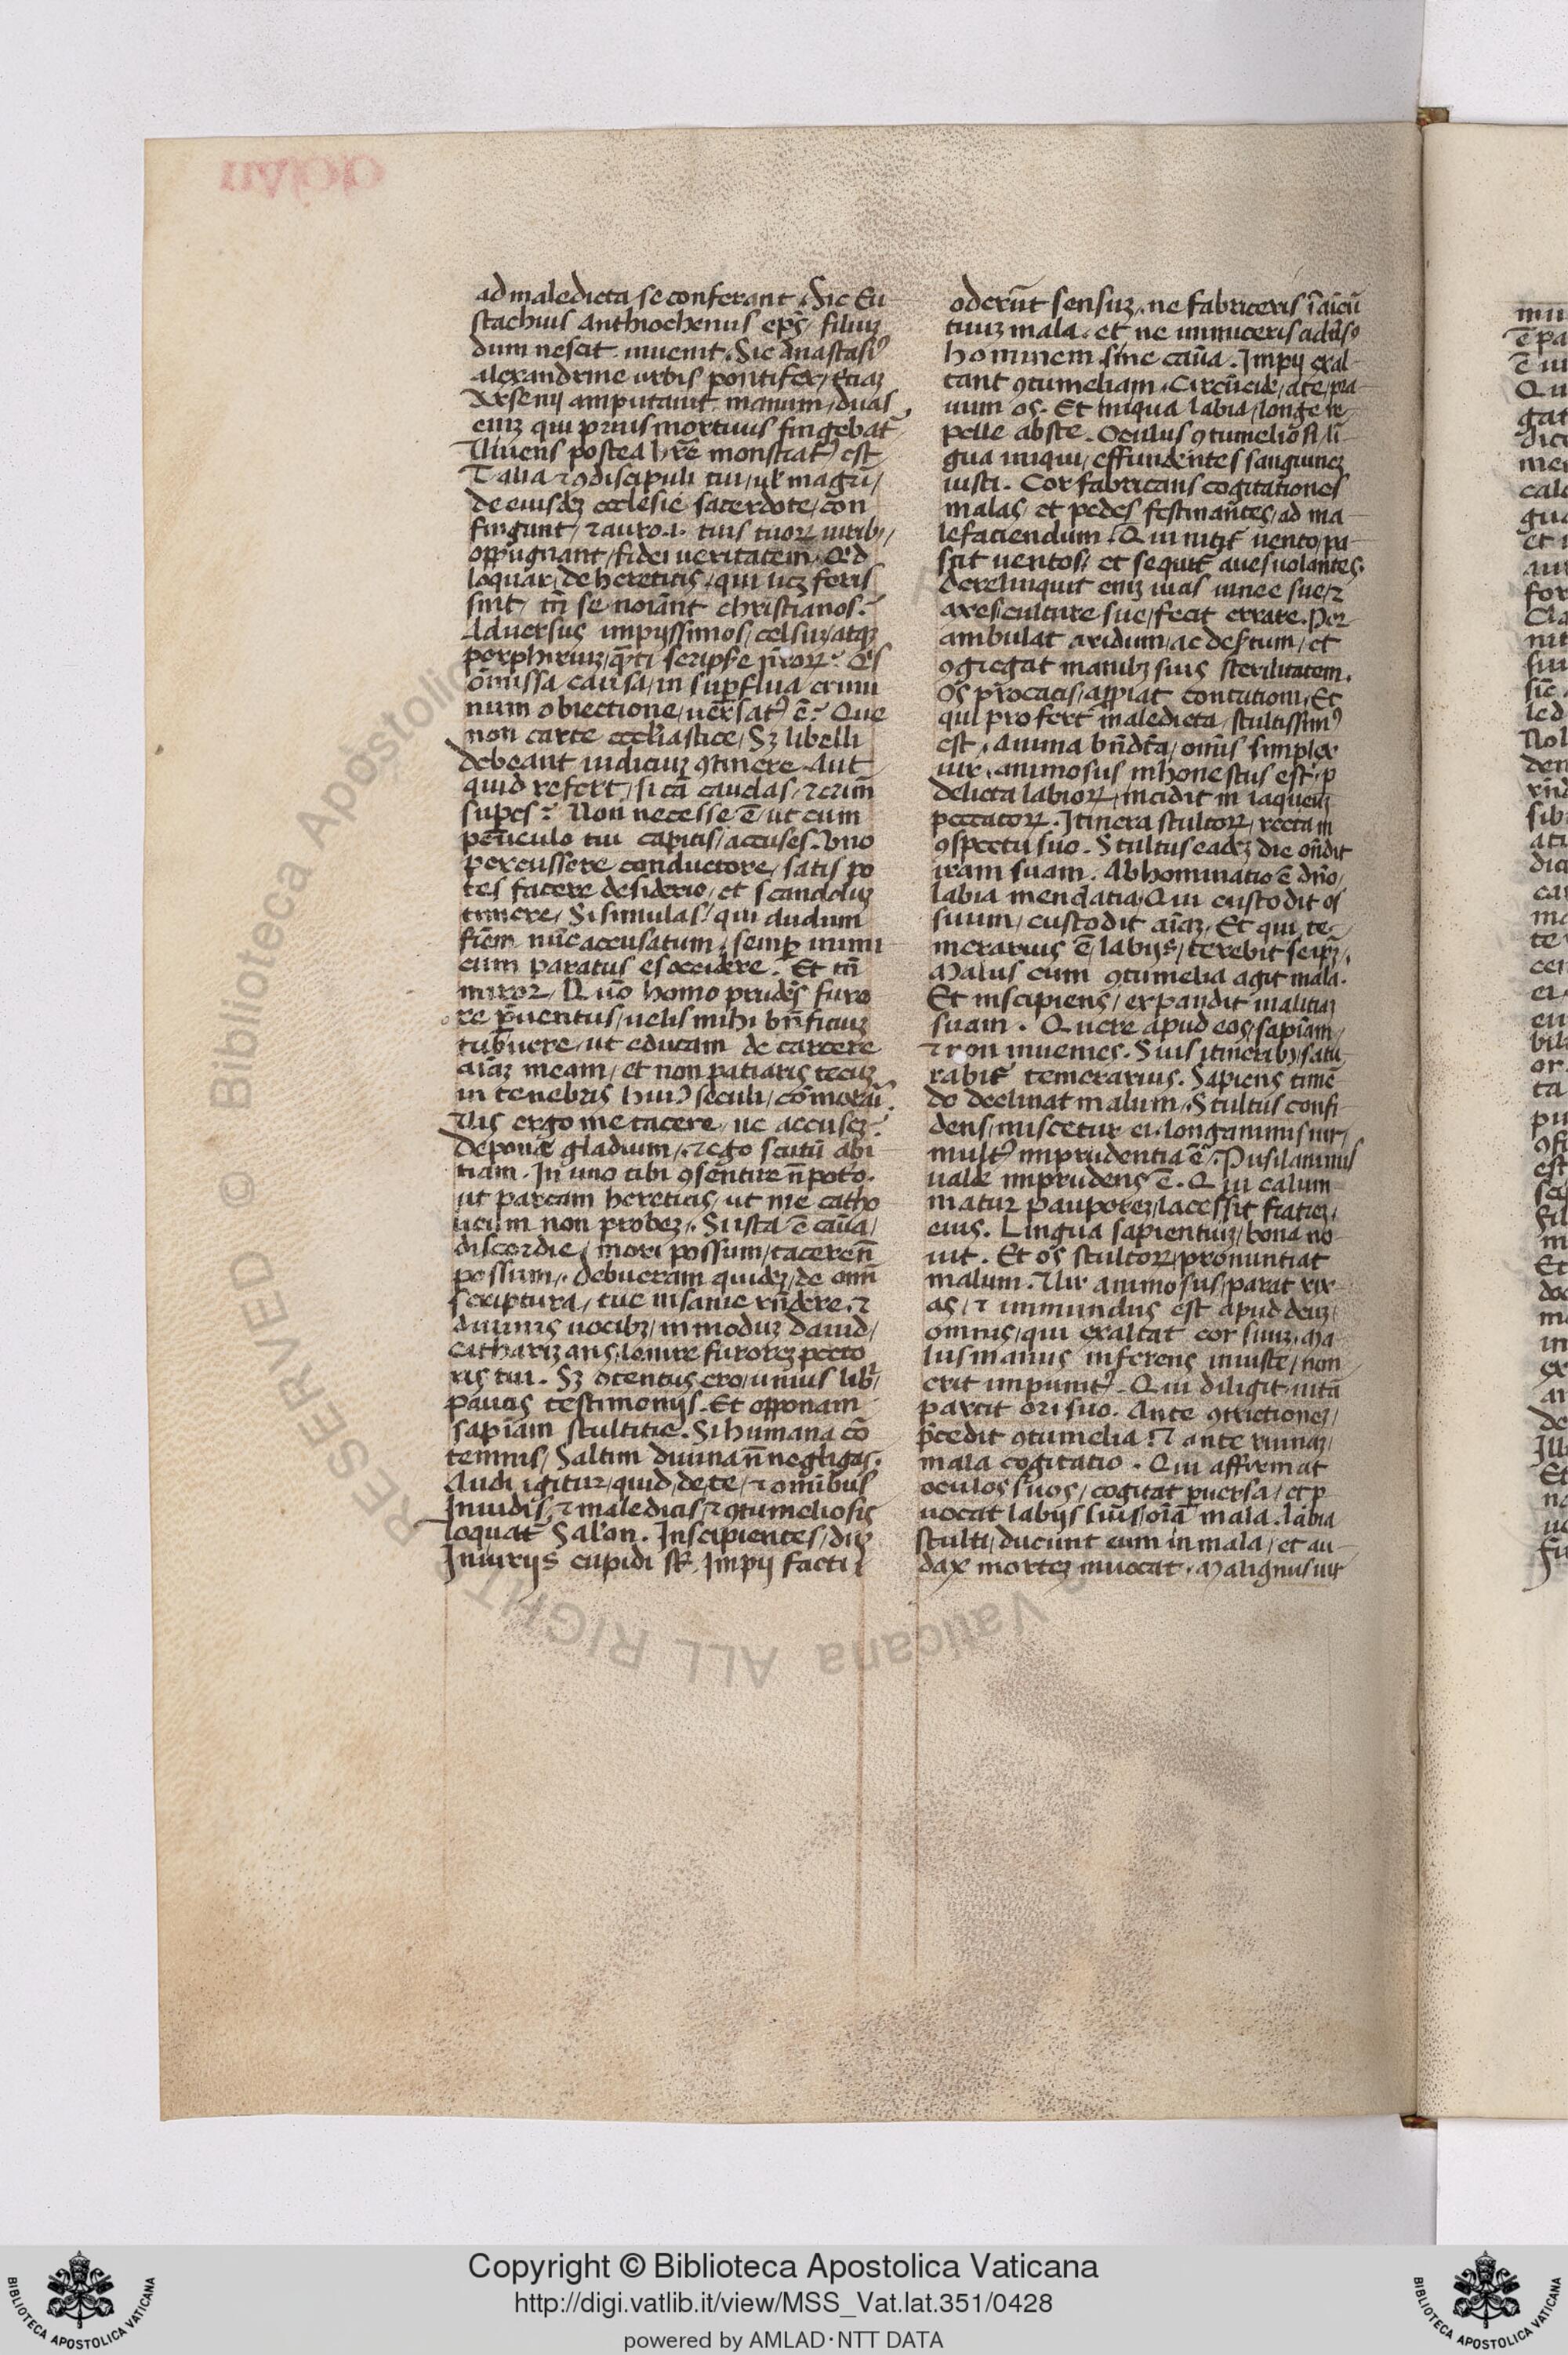 ad maledicta se conferant. Sic Eu
stachius Anthiochenus ep̃s/ filiuȝ
dum nescit inuenit. Sic Anastasi᷒
alexandrine urbis pontifex/ Etiaȝ
Arsenij amputauit manum/ duas
eniȝ qui prius mortuus fingebat᷑
Viuens postea hr̃e monstrat᷒ est
Talia ⁊ ꝯdiscipuli tui/ ul̕ magr̃i/
de eiusdeȝ ecclesie sacerdote/ con
fingunt/ ⁊ auro .i. tuis tuoꝝ uirib᷒/
oppugnant/ fidei ueritatem. Qͥd
loquar/ de hereticis/ qui licȝ foris
sint/ tñ se noiãnt christianos?
Aduersus impijssimos/ celsuȝ/ atqȝ
porphiriuȝ/ quãti scripse ñroꝝ? Qͥs
omissa causa/ in supflua crimi
num obiectione/ uersat᷒ ẽ? Que
non carte eccl̕iastice/ Sȝ libelli
debeant iudiciuȝ ꝯtinere. Aut
quid refert/ si cã caudas/ ⁊ crim̃
supes? Non necesse ẽ/ ut cum
piculo tui capitis/ accuses. Uno
percussore conductore/ satis po
tes facere desiderio/ et scandoluȝ
timere/ Si simulas/ qui dudum
frẽm nũc accusatum/ semp inimi
cum paratus es occidere. Et tñ
miror/ Quõ homo prudẽs furo
re puentus/ uelis mihi bñficiuȝ
tribuere/ ut educam de carcere
aiãȝ meam/ et non patiaris tecuȝ
in tenebris hui᷒ seculi/ cõmorari.
Vis ergo me tacere/ ne accuseȝ?
Depone gladium/ ⁊ ego scutũ abi
ciam. In uno tibi ꝯsentire ñ potero.
ut parcam hereticis/ ut me catho
licum non probeȝ. Si ista ẽ causa/
discordie/ mori possum/ tacere ñ
possum. debueram quideȝ/ de omi
scriptura/ tue insanie rñdere/ ⁊
diuinis uocibȝ/ in moduȝ dauid/
citharizans/ lenire furoreȝ pecto
ris tui. Sȝ ꝯtentus ero/ unius libri/
paucis testimonijs. Et opponam
sapiam stultitie. Si humana cõ
temnis/ Saltim diuina ñ negligas.
Audi igitur/ quid/ de te/ ⁊ omibus
Inuidis/ ⁊ maledicis/ ⁊ ꝯtumeliosis
loquat᷑ Salon. Inscipientes/ duȝ
Iniurijs cupidi st̃. Impij facti
oderũt sensuȝ. ne fabriceris ĩ aicũ
tuuȝ mala. et ne inimiceris adus᷒
hominem sine causa. Impij exal
tant ꝯtumeliam. Circũcide/ a te/ pra
uum os. Et iniqua labia/ longe re
pelle abs te. Oculus ꝯtumeliosi/ li
gua iniqui/ effundentes sanguineȝ
iusti. Cor fabricans cogitationes
malas/ et pedes festinantes/ ad ma
lefaciendum. Qui nitit᷑ uento/ pa
scit uentos/ et sequit᷑ aues uolantes.
derelinquit eniȝ uias uinee sue/ ⁊
axes culture sue/ fecit errare. Per
ambulat aridum/ ac desertum/ et
ꝯgregat manibȝ suis sterilitatem.
Os procacis/ appiat contritioni. Et
qui profert maledicta/ stultissim᷒
est. Anima bñdcã/ omis simplex
uir. animosus inhonestus est. p
delicta labioꝝ/ incidit in laqueuȝ
peccatoꝝ. Itinera stultoꝝ/ recta in
ꝯspectu suo. Stultus eadeȝ die oñdit
iram suam. Abhominatio ẽ dño/
labia mendacia. Qui custodit os
suum/ custodit aiãȝ. Et qui te
merarius ẽ/ labijs/ terebit seipȝ.
Malus cum ꝯtumelia agit mala.
Et inscipiens/ expandit malitiaȝ
suam. Quere apud eos/ sapiam/
⁊ non inuenies. Suis itineribȝ/ satu
rabit᷑ temerarius. Sapiens timẽ
do declinat malum. Stultus confi
dens/ miscetur ei. longanimis uir/
mult᷒ imprudentia ẽ. Pusilanimus
ualde imprudens ẽ. Qui calum
matur paupereȝ/ lacessit fratreȝ
eius. Lingua sapientuȝ/ bona no
uit. Et os stultoꝝ/ pronuntiat
malum. Vir animosus/ parat rix
as/ ⁊ immundus est apud deuȝ/
omnis/ qui exaltat cor suuȝ. Ma
lus manus inferens iniuste/ non
erit impunit᷒. Qui diligit uitã
parcit ori suo. Ante ꝯtrictioneȝ/
p̃cedit ꝯtumelia. ⁊ ante ruinaȝ/
mala cogitatio. Qui affirmat
oculos suos/ cogitat puersa/ et p
uocat labijs suis/ oiã mala. labia
stulti/ ducunt eum in mala/ et au
dax morteȝ inuocat. Malignus uir
Copyright © Biblioteca Apostolica Vaticana
http://digi.vatlib.it/view/MSS_Vat.lat.351/0428
powered by AMLAD·NTT DATA